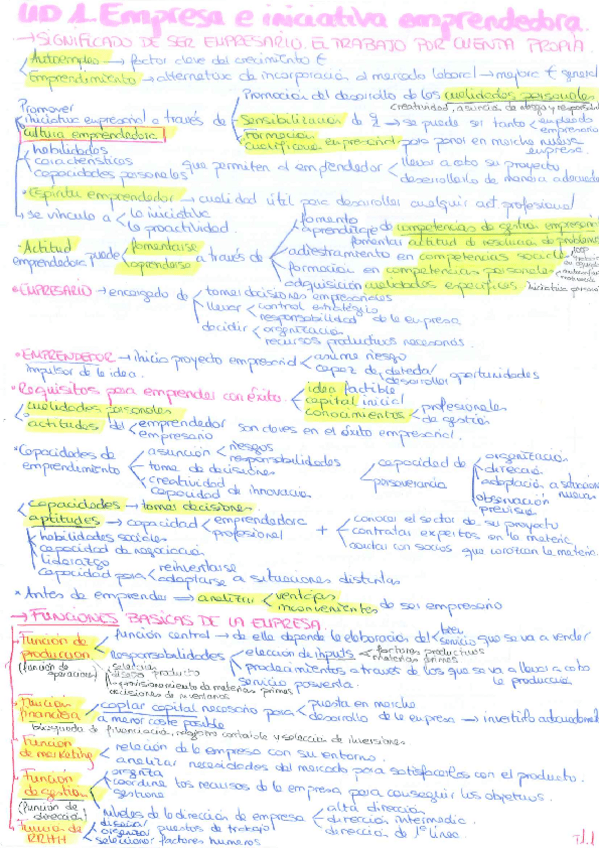 UD 1. Empresa e iniciativa emprendedora.
→ SIGNIFICADO DE SER EMPRESARIO. EL TRABAJO POR CUENTA PROPIA.
Autoempleo → factor clave del crecimiento €
Emprendimiento → alternativa de incorporación al mercado laboral → mejora € general
Promover
iniciativa empresarial a través de
Promoción del desarrollo de las cualidades personales
creatividad, asunción de riesgo y
sensibilización de → se puede ser tanto empleado
empresario
Formación
cualificar empresarial para poner en marcha nueva
empresa.
cultura emprendedora
habilidades
características
capacidades personales
que permiten al emprendedor
llevar a cabo su proyecto
desarrollarlo de manera adecuada
· Espíritu emprendedor → cualidad útil para desarrollar cualquier act profesional
se vincula a la iniciativa
la proactividad.
· Actitud
emprendedora puede
fomentarse
aprenderse
a través de
fomento
aprendizaje de competencias de gestión empresarial
fomentar actitud de resolución de problemas
adiestramiento en competencias sociales
formación en competencias personales
adquisición cualidades específicas
* EMPRESARIO → encargado de
tomar decisiones empresariales
llevar control estratégico
responsabilidad de la empresa
decidir organización
recursos productivos necesarios.
* EMPRENDEDOR → inicia proyecto empresarial
impulsor de la idea.
asume riesgo
capaz de detectar/
desarrollar oportunidades
* Requisitos para emprender con éxito.
idea factible
capital inicial
conocimientos profesionales
de gestión
cualidades personales
actitudes del emprendedor
empresario
son claves en el éxito empresarial.
* Capacidades de
emprendimiento
asunción riesgos
responsabilidades
toma de decisiones
creatividad
capacidad de innovación
capacidad de organización
dirección
perseverancia
adaptación a situaciones
nuevas
observación
previsión
capacidades → tomar decisiones.
aptitudes → capacidad emprendedora
profesional
+
conocer el sector de su proyecto
contratar expertos en la materia
contar con socios que conozcan la materia.
habilidades sociales
capacidad de negociación
liderazgo
capacidad para reinventarse
adaptarse a situaciones distintas
* Antes de emprender → analizar ventajas
inconvenientes de ser empresario
→ FUNCIONES BASICAS DE LA EMPRESA.
Función de
producción
(función de
operaciones)
función central → de ella depende la elaboración del bien
servicio que se va a vender
responsabilidades
elección de inputs factores productivos
materias primas
procedimientos a través de los que se va a llevar a cabo
la producción
servicio posventa.
selección
diseño producto
aprovisionamiento de materias primas
decisiones de inventarios
Función
financiera
captar capital necesario para
a menor coste posible
puesta en marcha
desarrollo de la empresa → invertirlo adecuadamente
búsqueda de financiación, registro contable y selección de inversiones
Función
de marketing
relación de la empresa con su entorno.
analizar necesidades del mercado para satisfacerlas con el producto.
Función
de gestión
(función de
dirección)
organiza
coordina
gestiona
los recursos de la empresa para conseguir los objetivos.
niveles de la dirección de empresa
alta dirección
dirección intermedia
dirección de 1ª línea.
Función de
RRHH
diseñar
organizar puestos de trabajo
seleccionar factores humanos